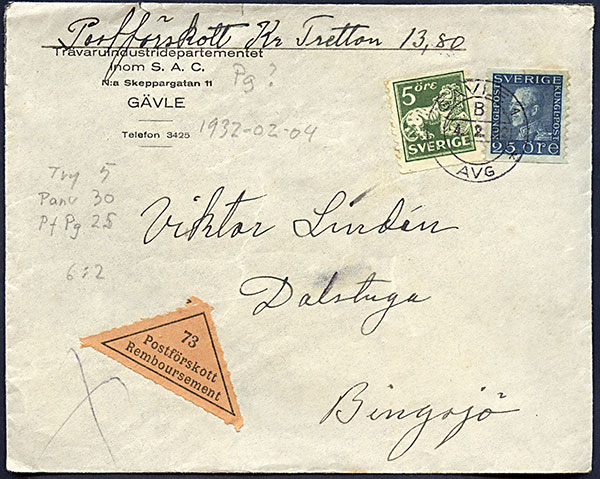 Postförskott Kr Tretton 13,80
Trävaruindustridepartementet
inom S. A. C.
N:a Skeppargatan 11
GÄVLE
Telefon 3425
Pg ?
1932-02-04
5 ÖRE
SVERIGE
SVERIGE
KUNGL·POST
KUNGL·POST
25 ÖRE
B
AVG
5
Panv 30
Pf Pg 25
6:2
Viktor Lindén
Dalstuga
Bingsjö
73
Postförskott
Remboursement